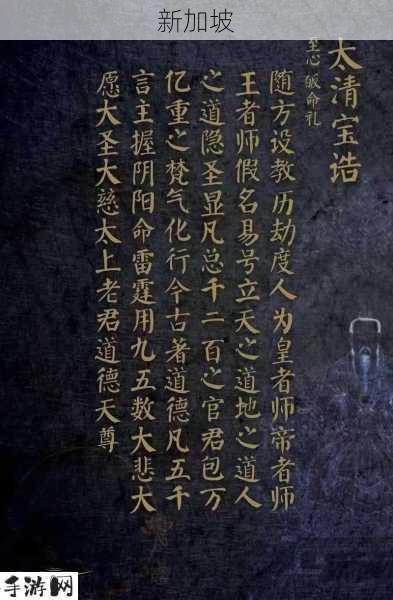 新加坡
太清宝诰
至心 皈命礼
随方设教历劫度人为皇者师帝者师
王者师假名易号立天之道地之道人
之道隐圣显凡总千二百之官君包万
亿重之梵气化行今古著道德凡五千
言主握阴阳命雷霆用九五数大悲大
愿大圣大慈太上老君道德天尊
手游网